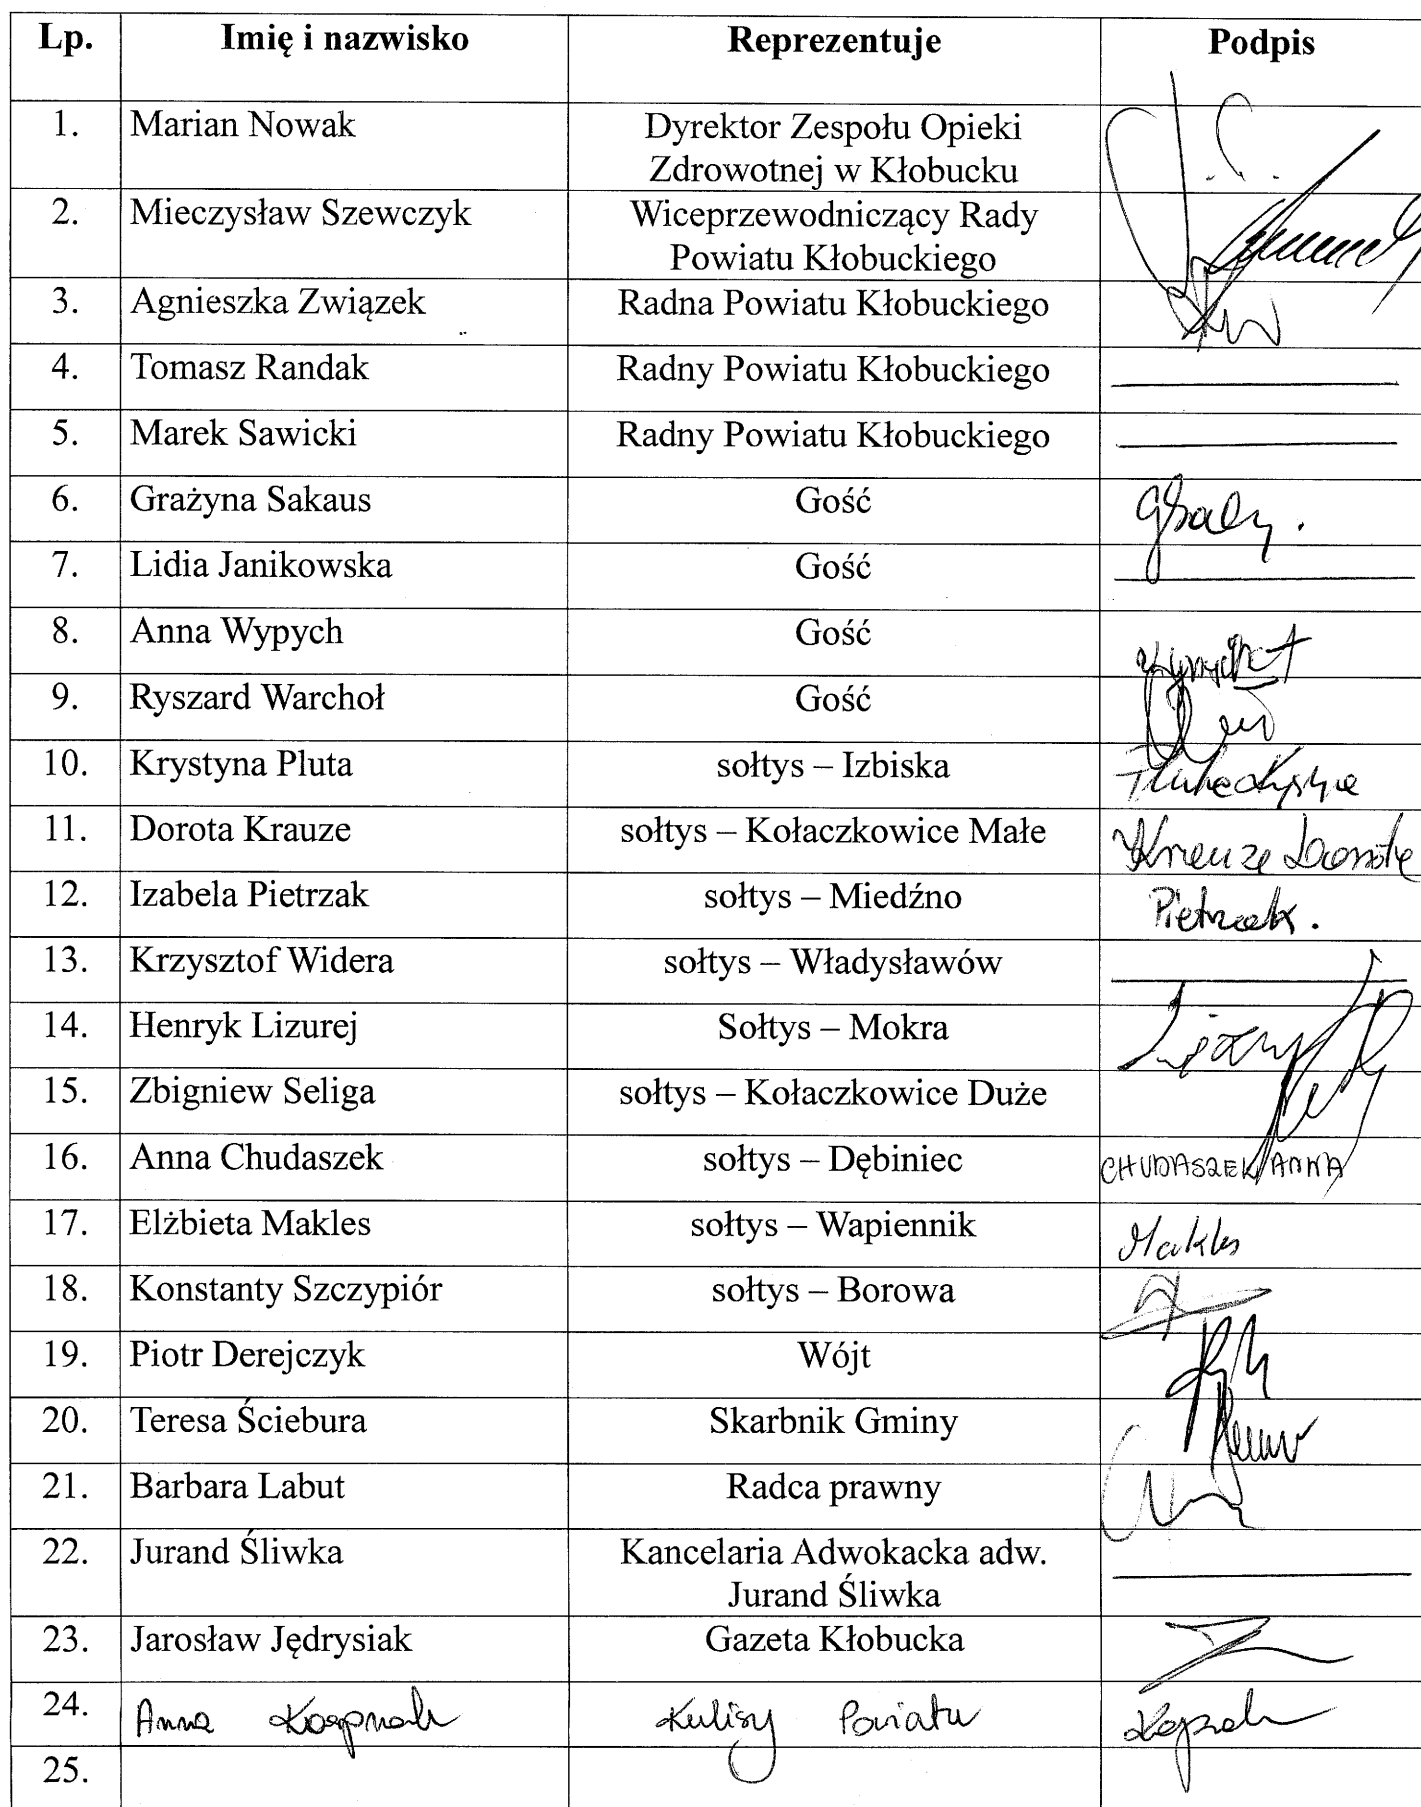 Lp. Imię i nazwisko Reprezentuje Podpis
1. Marian Nowak Dyrektor Zespołu Opieki
Zdrowotnej w Kłobucku
2. Mieczysław Szewczyk Wiceprzewodniczący Rady
Powiatu Kłobuckiego
3. Agnieszka Związek Radna Powiatu Kłobuckiego
4. Tomasz Randak Radny Powiatu Kłobuckiego
5. Marek Sawicki Radny Powiatu Kłobuckiego
6. Grażyna Sakaus Gość
7. Lidia Janikowska Gość
8. Anna Wypych Gość
9. Ryszard Warchoł Gość
10. Krystyna Pluta sołtys – Izbiska
11. Dorota Krauze sołtys – Kołaczkowice Małe Krauze Dorota
12. Izabela Pietrzak sołtys – Miedźno Pietrzak.
13. Krzysztof Widera sołtys – Władysławów
14. Henryk Lizurej Sołtys – Mokra
15. Zbigniew Seliga sołtys – Kołaczkowice Duże
16. Anna Chudaszek sołtys – Dębiniec CHUDASZEK ANNA
17. Elżbieta Makles sołtys – Wapiennik Makles
18. Konstanty Szczypiór sołtys – Borowa
19. Piotr Derejczyk Wójt
20. Teresa Ściebura Skarbnik Gminy
21. Barbara Labut Radca prawny
22. Jurand Śliwka Kancelaria Adwokacka adw.
Jurand Śliwka
23. Jarosław Jędrysiak Gazeta Kłobucka
24. Anna Kulisy Powiatu
25.